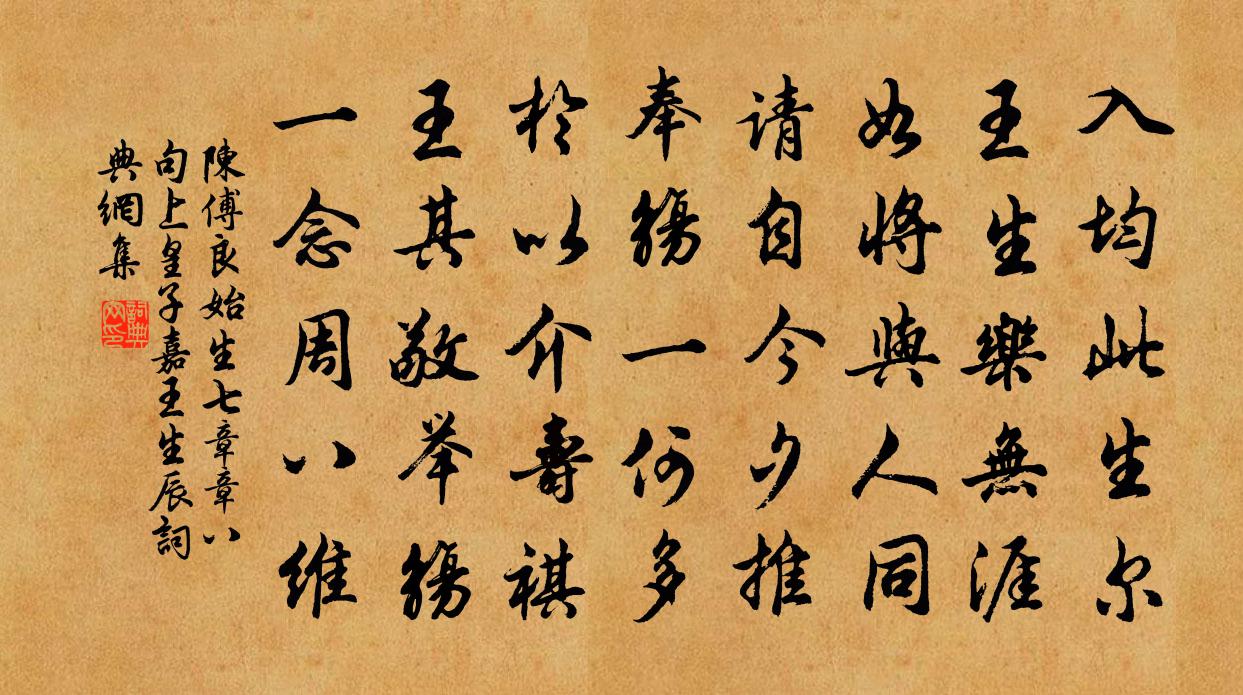 入均此生尔
王生樂無涯
如將與人同
请自今夕推
奉觴一何多
於以介壽祺
王其敬举觴
一念周八維
陳傅良始生七章章八
句上皇子嘉王生辰詞
典網集
詞典网印